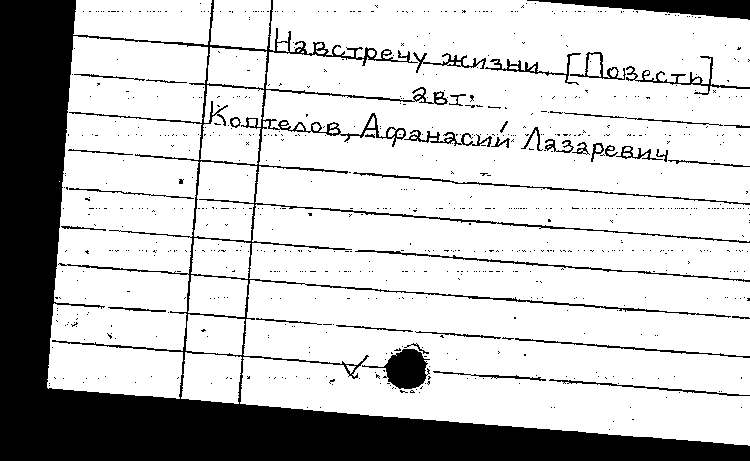 Навстречу жизни. [Повесть]
авт:
Коптелов, Афанасий Лазаревич.